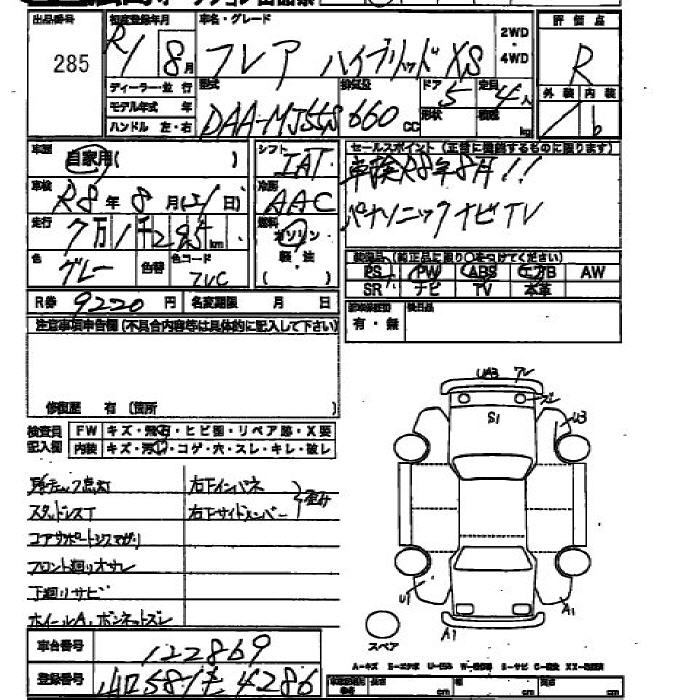 出品番号 初度登録年月 車名・グレード 2WD・4WD 評価点
285 R1 8月 フレア ハイブリッド XS R
ディーラー・並行 型式 排気量 ドア 5 定員 4人 外装 内装
モデル年式 年 DAA-MJ55S 660cc 形状 積載 kg b
ハンドル 左・右
車歴 自家用( ) シフト IAT セールスポイント(正常に機能するものに限ります)
車検 R8年8月(21日) 冷房 AAC 車検R8年8月!!
走行 7万1千285km 燃料 ガソリン・軽油 ( ) パナソニックナビTV
色 グレー 色替 色コード ZVC
PS PW ABS エアB AW
SR ナビ TV 本革
R券 9220円 名変期限 月 日
有・無
注意事項申告欄(不具合内容等は具体的に記入して下さい)
修復歴 有(箇所 )
検査員記入欄 FW キズ・飛石・ヒビ割・リペア跡・X要
内装 キズ・汚れ・コゲ・穴・スレ・キレ・破レ
右下インパネ
スタッドレスT 右下サイドメンバー 歪み
コアサポートシタマガリ
フロント廻りオサレ
下廻りサビ
ホイールA、ボンネットズレ
車台番号 122869
登録番号 山口581 4286
S1
U3
U1
A1
A1
スペア
A-キズ E-エクボ
cm cm cm